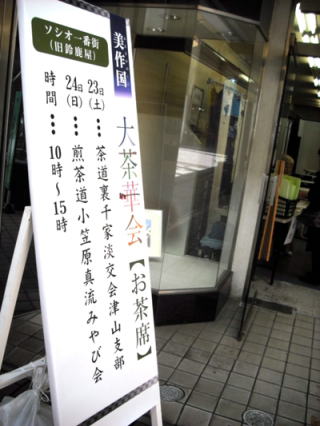 美作国
大茶華会【お茶席】
ソシオ一番街
(旧鈴鹿屋)
23日(土)…茶道裏千家淡交会津山支部
24日(日)…煎茶道小笠原真流みやび会
時間…10時～15時